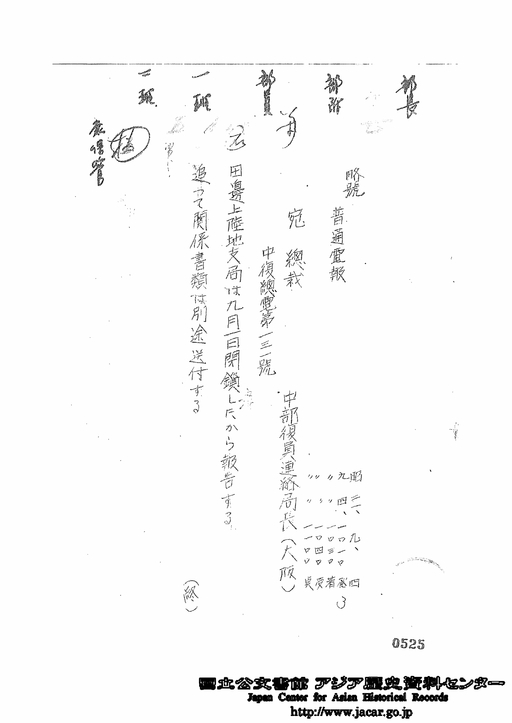 部長
部附
部員
一班
二班
要保管
略號
普通電報
宛 總裁
中復總電第一三一號
中部復員連絡局長(大阪)
田邊上陸地支局は九月一日閉鎖したから報告する
追って関係書類は別途送付する
(終)
0525
国立公文書館 アジア歴史資料センター
Japan Center for Asian Historical Records
http://www.jacar.go.jp